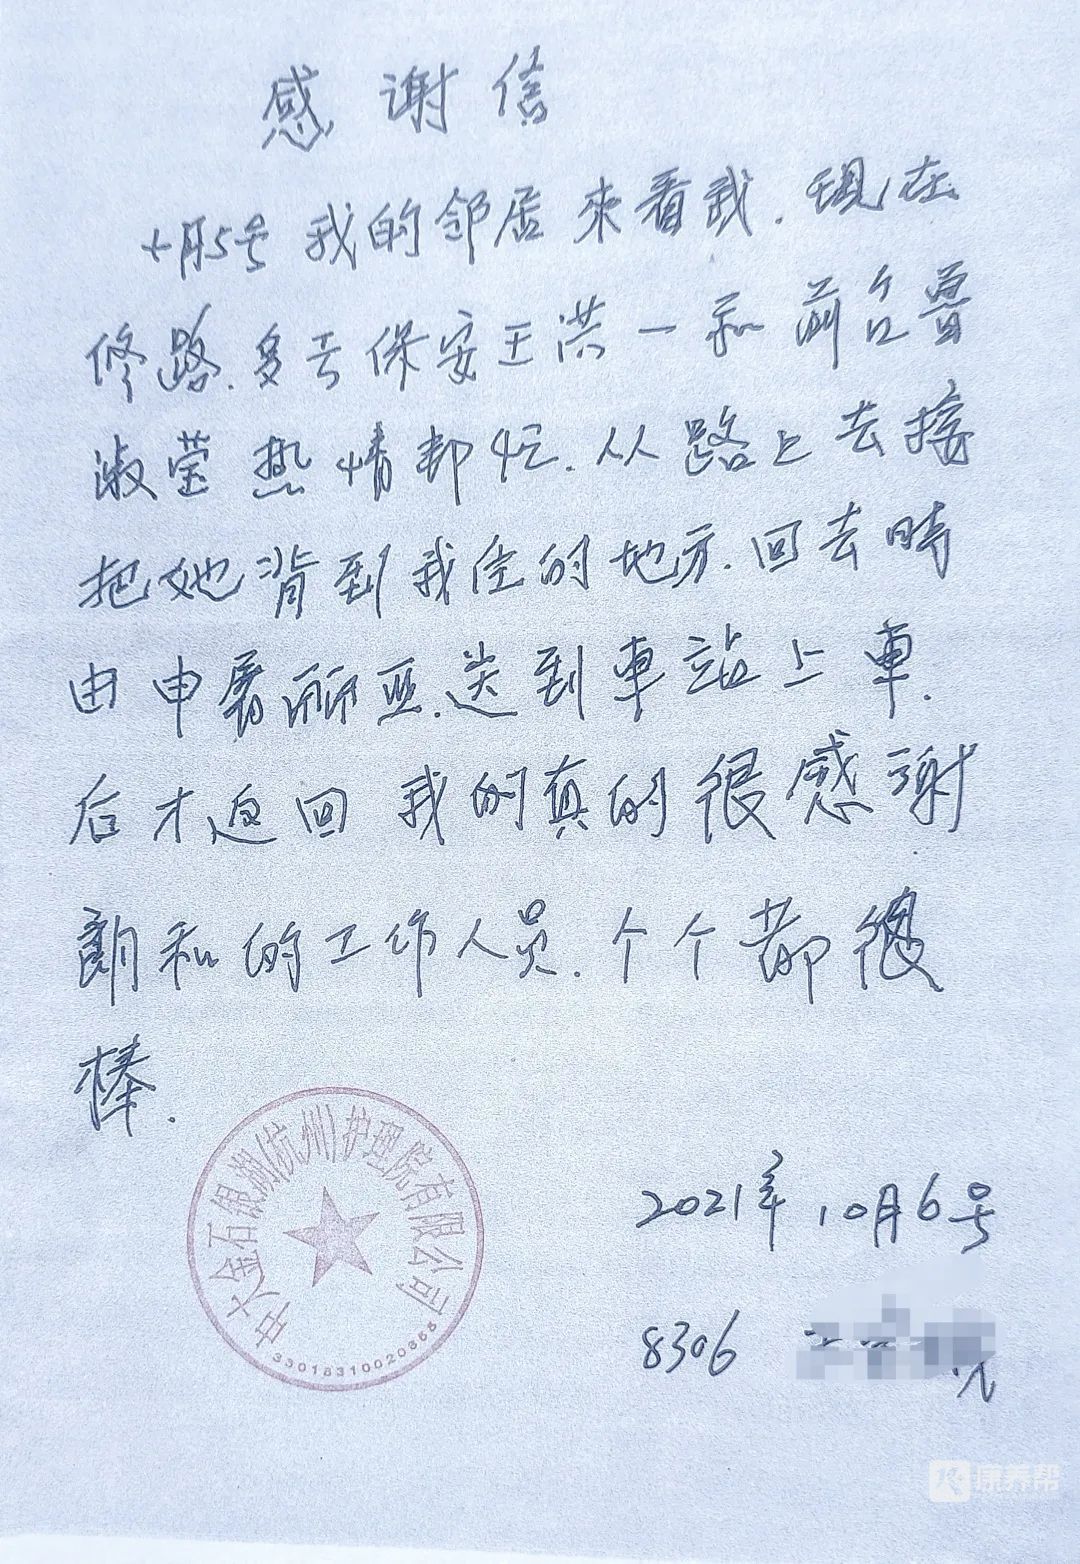 感谢信
十月5号我的邻居來看我.现在
修路.多亏保安王洪一和前台曾
淑莹热情帮忙.从路上去接
把她背到我住的地方.回去時
由申屠丽亚.送到車站上車.
后才返回我的真的很感谢
朗和的工作人员.个个都很
棒.
中大金石银湖(杭州)护理院有限公司
33018310020855
2021年10月6号
8306
康养帮